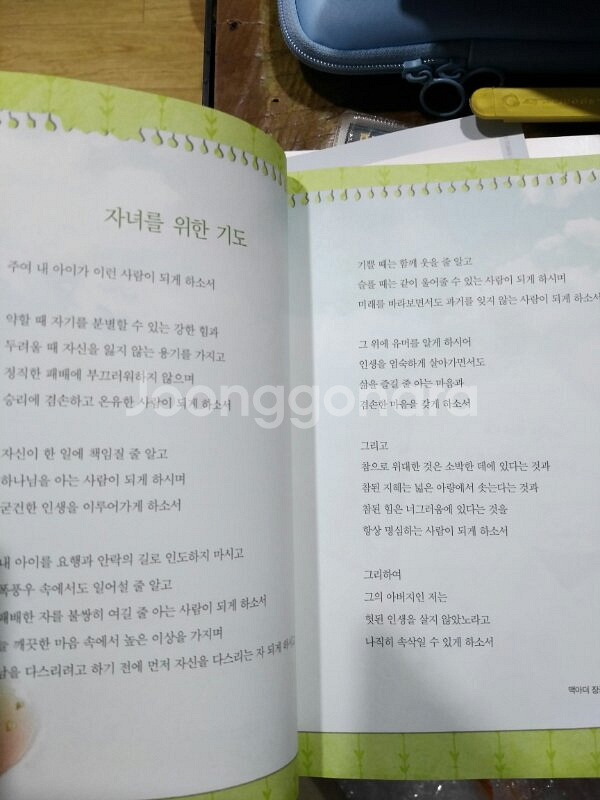 자녀를 위한 기도
주여 내 아이가 이런 사람이 되게 하소서
약할 때 자기를 분별할 수 있는 강한 힘과
두려울 때 자신을 잃지 않는 용기를 가지고
정직한 패배에 부끄러워하지 않으며
승리에 겸손하고 온유한 사람이 되게 하소서
자신이 한 일에 책임질 줄 알고
하나님을 아는 사람이 되게 하시며
굳건한 인생을 이루어가게 하소서
내 아이를 요행과 안락의 길로 인도하지 마시고
폭풍우 속에서도 일어설 줄 알고
패배한 자를 불쌍히 여길 줄 아는 사람이 되게 하소서
늘 깨끗한 마음 속에서 높은 이상을 가지며
남을 다스리려고 하기 전에 먼저 자신을 다스리는 자 되게 하시고
기쁠 때는 함께 웃을 줄 알고
슬플 때는 같이 울어줄 수 있는 사람이 되게 하시며
미래를 바라보면서도 과거를 잊지 않는 사람이 되게 하소서
그 위에 유머를 알게 하시어
인생을 엄숙하게 살아가면서도
삶을 즐길 줄 아는 마음과
겸손한 마음을 갖게 하소서
그리고
참으로 위대한 것은 소박한 데에 있다는 것과
참된 지혜는 넓은 아량에서 솟는다는 것과
참된 힘은 너그러움에 있다는 것을
항상 명심하는 사람이 되게 하소서
그리하여
그의 아버지인 저는
헛된 인생을 살지 않았노라고
나직히 속삭일 수 있게 하소서
맥아더
Joonggonara